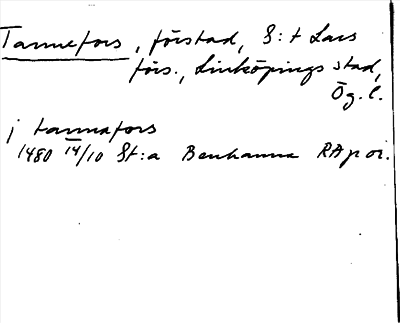 Tannefors, förstad, S:t Lars
förs., Linköpings stad,
Ög.l.
j tannafors
1480 14/10 St:a Benhamra RAp or.